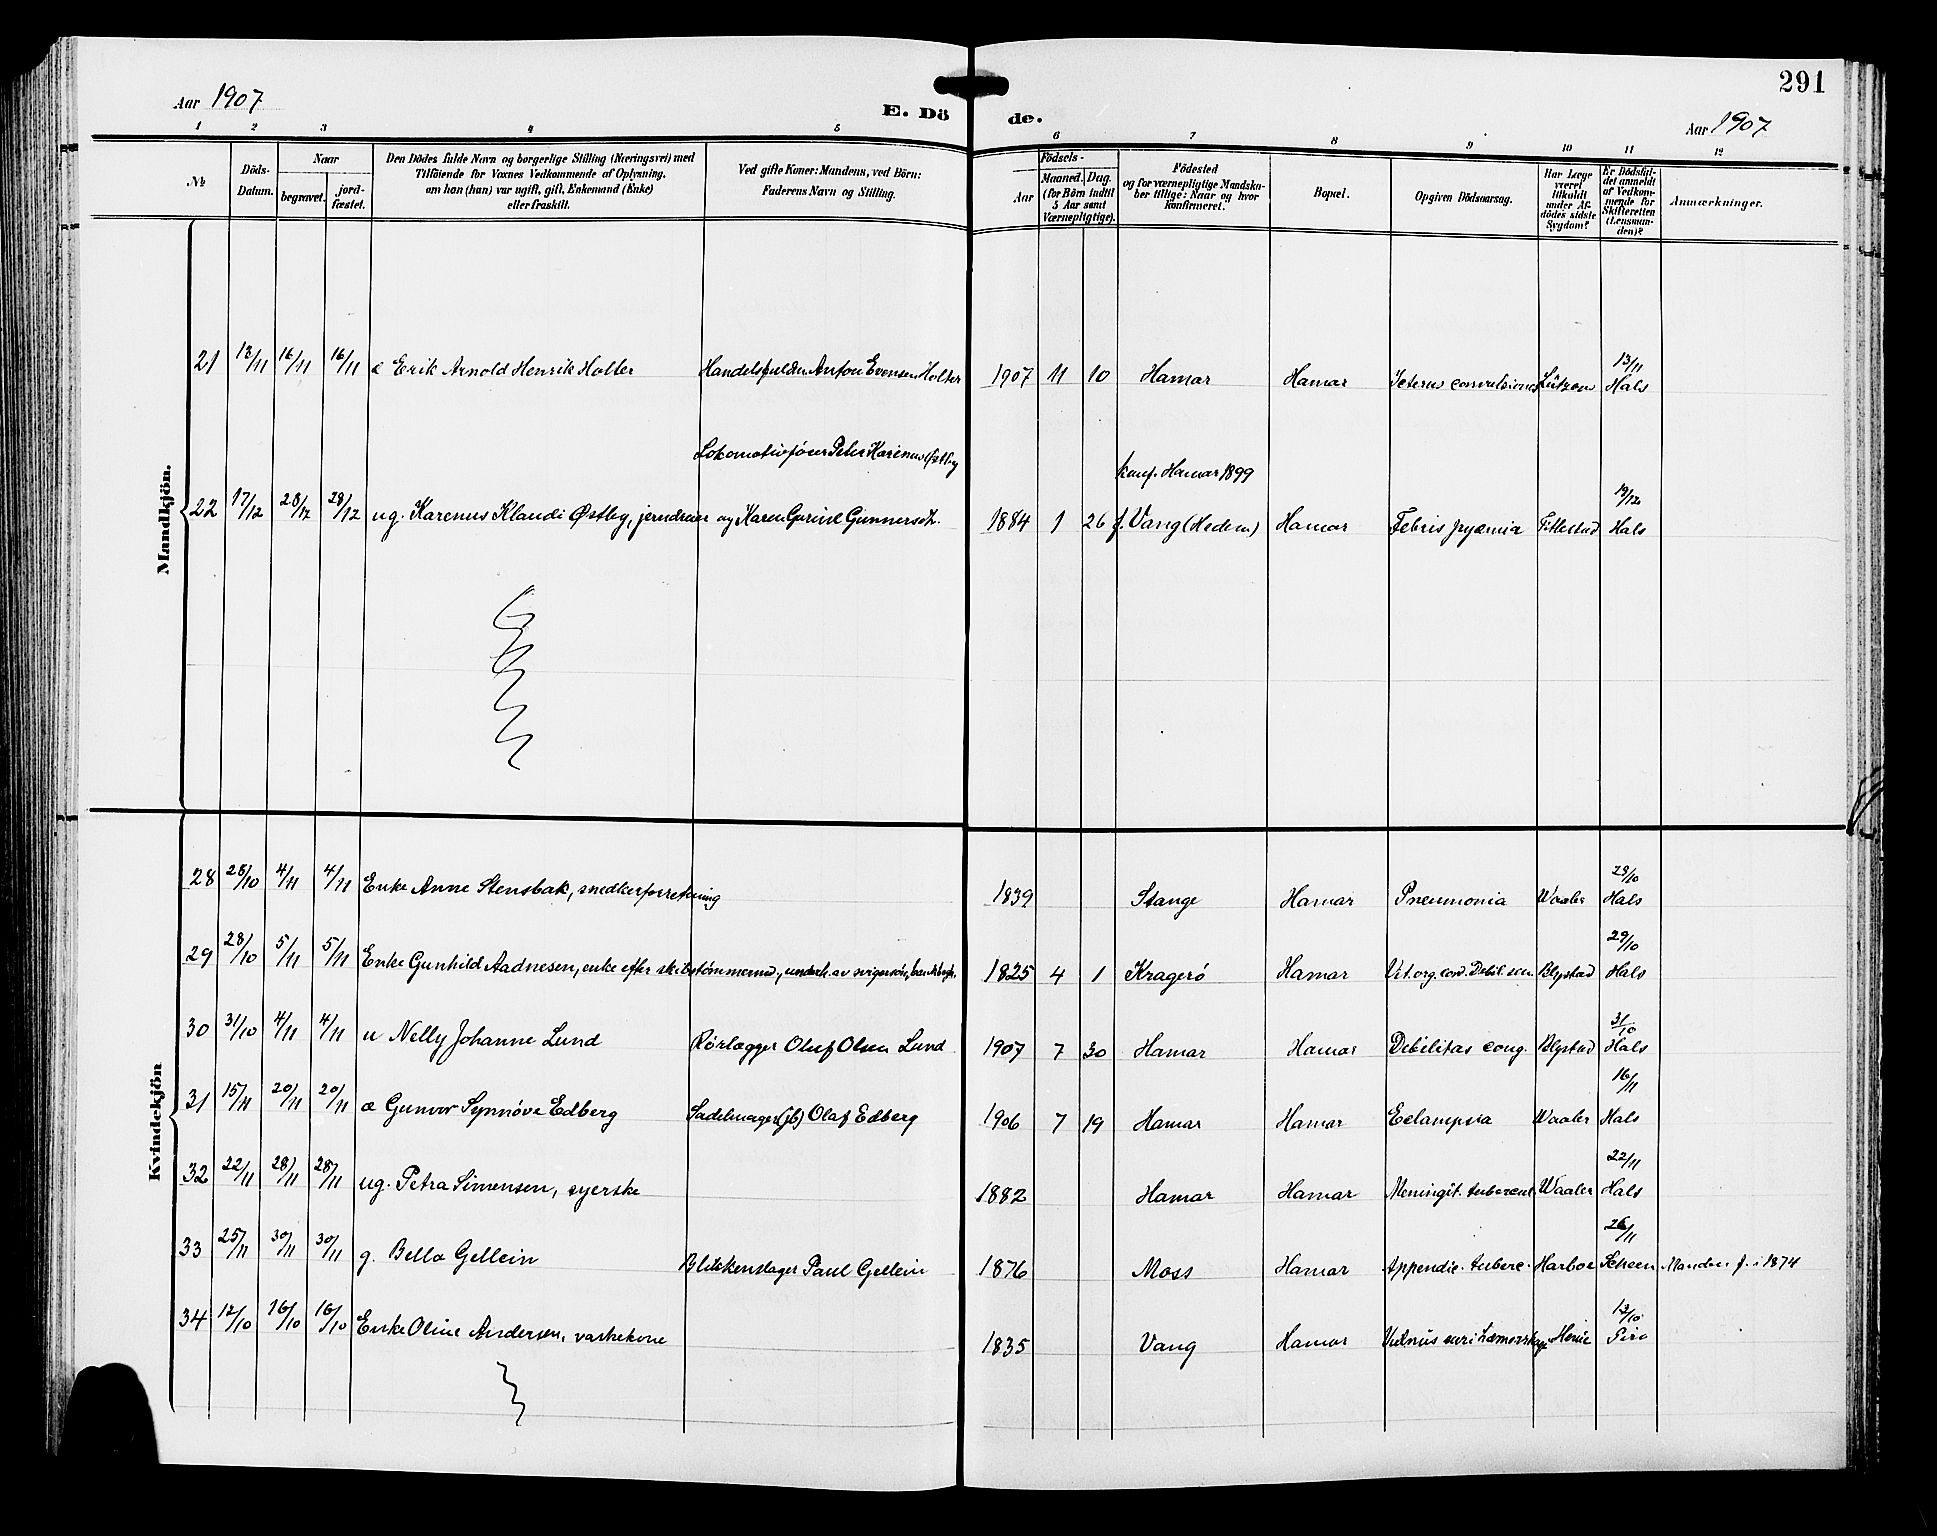 291
Aar 1907
E. Dö de.
Aar 1907
1 2 3 4 5 6 7 8 9 10 11 12
№
Döds-Datum.
Naar
begravet.
jord-fæstet.
Den Dödes fulde Navn og borgerlige Stilling (Næringsvei) med
Tilföiende for Voxnes Vedkommende af Oplysning,
om han (hun) var ugift, gift, Enkemand (Enke)
eller fraskilt.
Ved gifte Koner: Mandens, ved Börn:
Faderens Navn og Stilling.
Födsels-
Aar
Maaned. Dag.
(for Börn indtil
5 Aar samt
Værnepligtige).
Födested
og for værnepligtige Mandska-
ber tillige: Naar og hvor
konfirmeret.
Bopæl.
Opgiven Dödsaarsag.
Har Læge
været
tilkaldt
under Af-
dödes sidste
Sygdom?
Er Dödsfal-
det anmeldt
af Vedkom-
mende for
Skifteretten
(Lensman-
den)?
Anmærkninger.
Mandkjön.
21 13/11 16/11 16/11 æ Erik Arnold Henrik Holter Anton Evensen Holter 1907 11 10 Hamar Hamar Icterus convulsiones Lützow 13/11 Hals
Lokomotivfører Peter Karenus Østby
konf. Hamar 1899
22 17/12 28/12 28/12 ug. Karenus Klaudi Østby, jerndreier og Karen Gurine Gunnersdt. 1884 1 26 f. Vang (Hedem) Hamar Febris pyæmia 19/12 Hals
Kvindekjön
28 28/10 4/11 4/11 Enke Anne Stensbak, snedkerforretning 1839 Stange Hamar Pneumonia Waaler 29/10 Hals
29 28/10 5/11 5/11 Enke Gunhild Aadnesen, enke efter skibstømmermd., underh. av svigersøn, 1825 4 1 Kragerö Hamar Vit. org. cord. Debil. sen. Blystad 29/10 Hals
30 31/10 4/11 4/11 u Nelly Johanne Lund Rörlægger Oluf Olsen Lund 1907 7 30 Hamar Hamar Debilitas cong. Blystad 31/10 Hals
31 15/11 20/11 20/11 æ Gunvor Synnöve Edberg Sadelmager (jb) Olaf Edberg 1906 7 19 Hamar Hamar Eclampsia Waaler 16/11 Hals
32 22/11 28/11 28/11 ug. Petra Simensen, syerske 1882 Hamar Hamar Meningit. tubercul. Waaler 22/11 Hals
33 25/11 30/11 30/11 g. Bella Gellein Blikkenslager Paul Gellein 1876 Moss Hamar Appendic. tuberc. Harboe 26/11 Scheen Manden f. i 1874
34 12/10 16/10 16/10 Enke Oline Andersen, vaskekone 1835 Vang Hamar 12/10